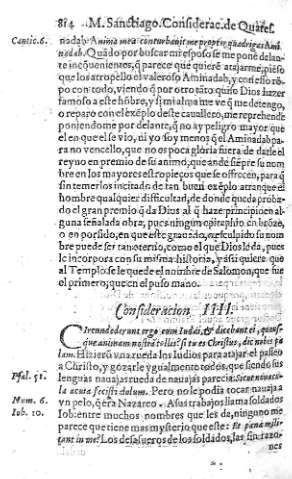 814 M. Sanctiago. Considerac. de Quares.
Cantic. 6. nadab: Anima mea conturbavit me propter quadrigas Ami
nadab. Quãdo por buscar mi esposo se me ponẽ delan-
te incõuenientes, q̃ parece que quierẽ atajarme, piẽso
que los atropello el valeroso Aminadab, y con esso rõ-
po con todo, viendo q̃ por otro tãto quiso Dios hazer
famoso a este hõbre, y si mi alma me vè q̃ me detengo,
o reparo con el exẽplo deste cauallero, me reprehende
poniendome por delante, q̃ no ay peligro mayor que
el en que el se vio, ni yo soy menos q̃ el Aminadab pa-
ra no vencello, que no es poca gloria fuera de darle el
reyno en premio de su animo, que ande siẽpre su nom
bre en los mayores estropieços que se offrecen, para q̃
sin temerlos incitado de tan buen exẽplo atranque el
hombre qualquier difficultad, de donde queda proba-
do el gran premio q̃ da Dius al q̃ haze principio en al-
guna señalada obra, pues ningun epitaphio en brõze,
o en porfido, en que este grauado, o esculpido su nom
bre puede ser tan eterno, como el que Dios le da, pues
le incorpora con su misma historia, y assi quiere que
al Templo se le quede el nombre de Salomon, que fue
el primero, que en el puso mano.
Consideracion IIII.
Circundederunt ergo eum Iudæi, & dicebant ei, quous-
que animam nostrã tollis? si tu es Christus, dic nobis pa
lam. Hizierõ vna rueda los Iudios para atajar el passo
a Christo, y gozarle ygualmente todos, que siendo sus
Psal. 51. lenguas nauajas rueda de nauajas parecia: Sicut nouacu-
la acuta fecisti dolum. Pero no le podia tocar nauaja a
Num. 6. vn pelo, q̃ era Nazareo. A sus trabajos llama soldados
Iob. 10. Iob: entre muchos nombres que les da, ninguno me
parece que tiene mas mysterio que este: Et pœnæ mili-
tant in me? Los desafueros de los soldados, las sin razo-
nes